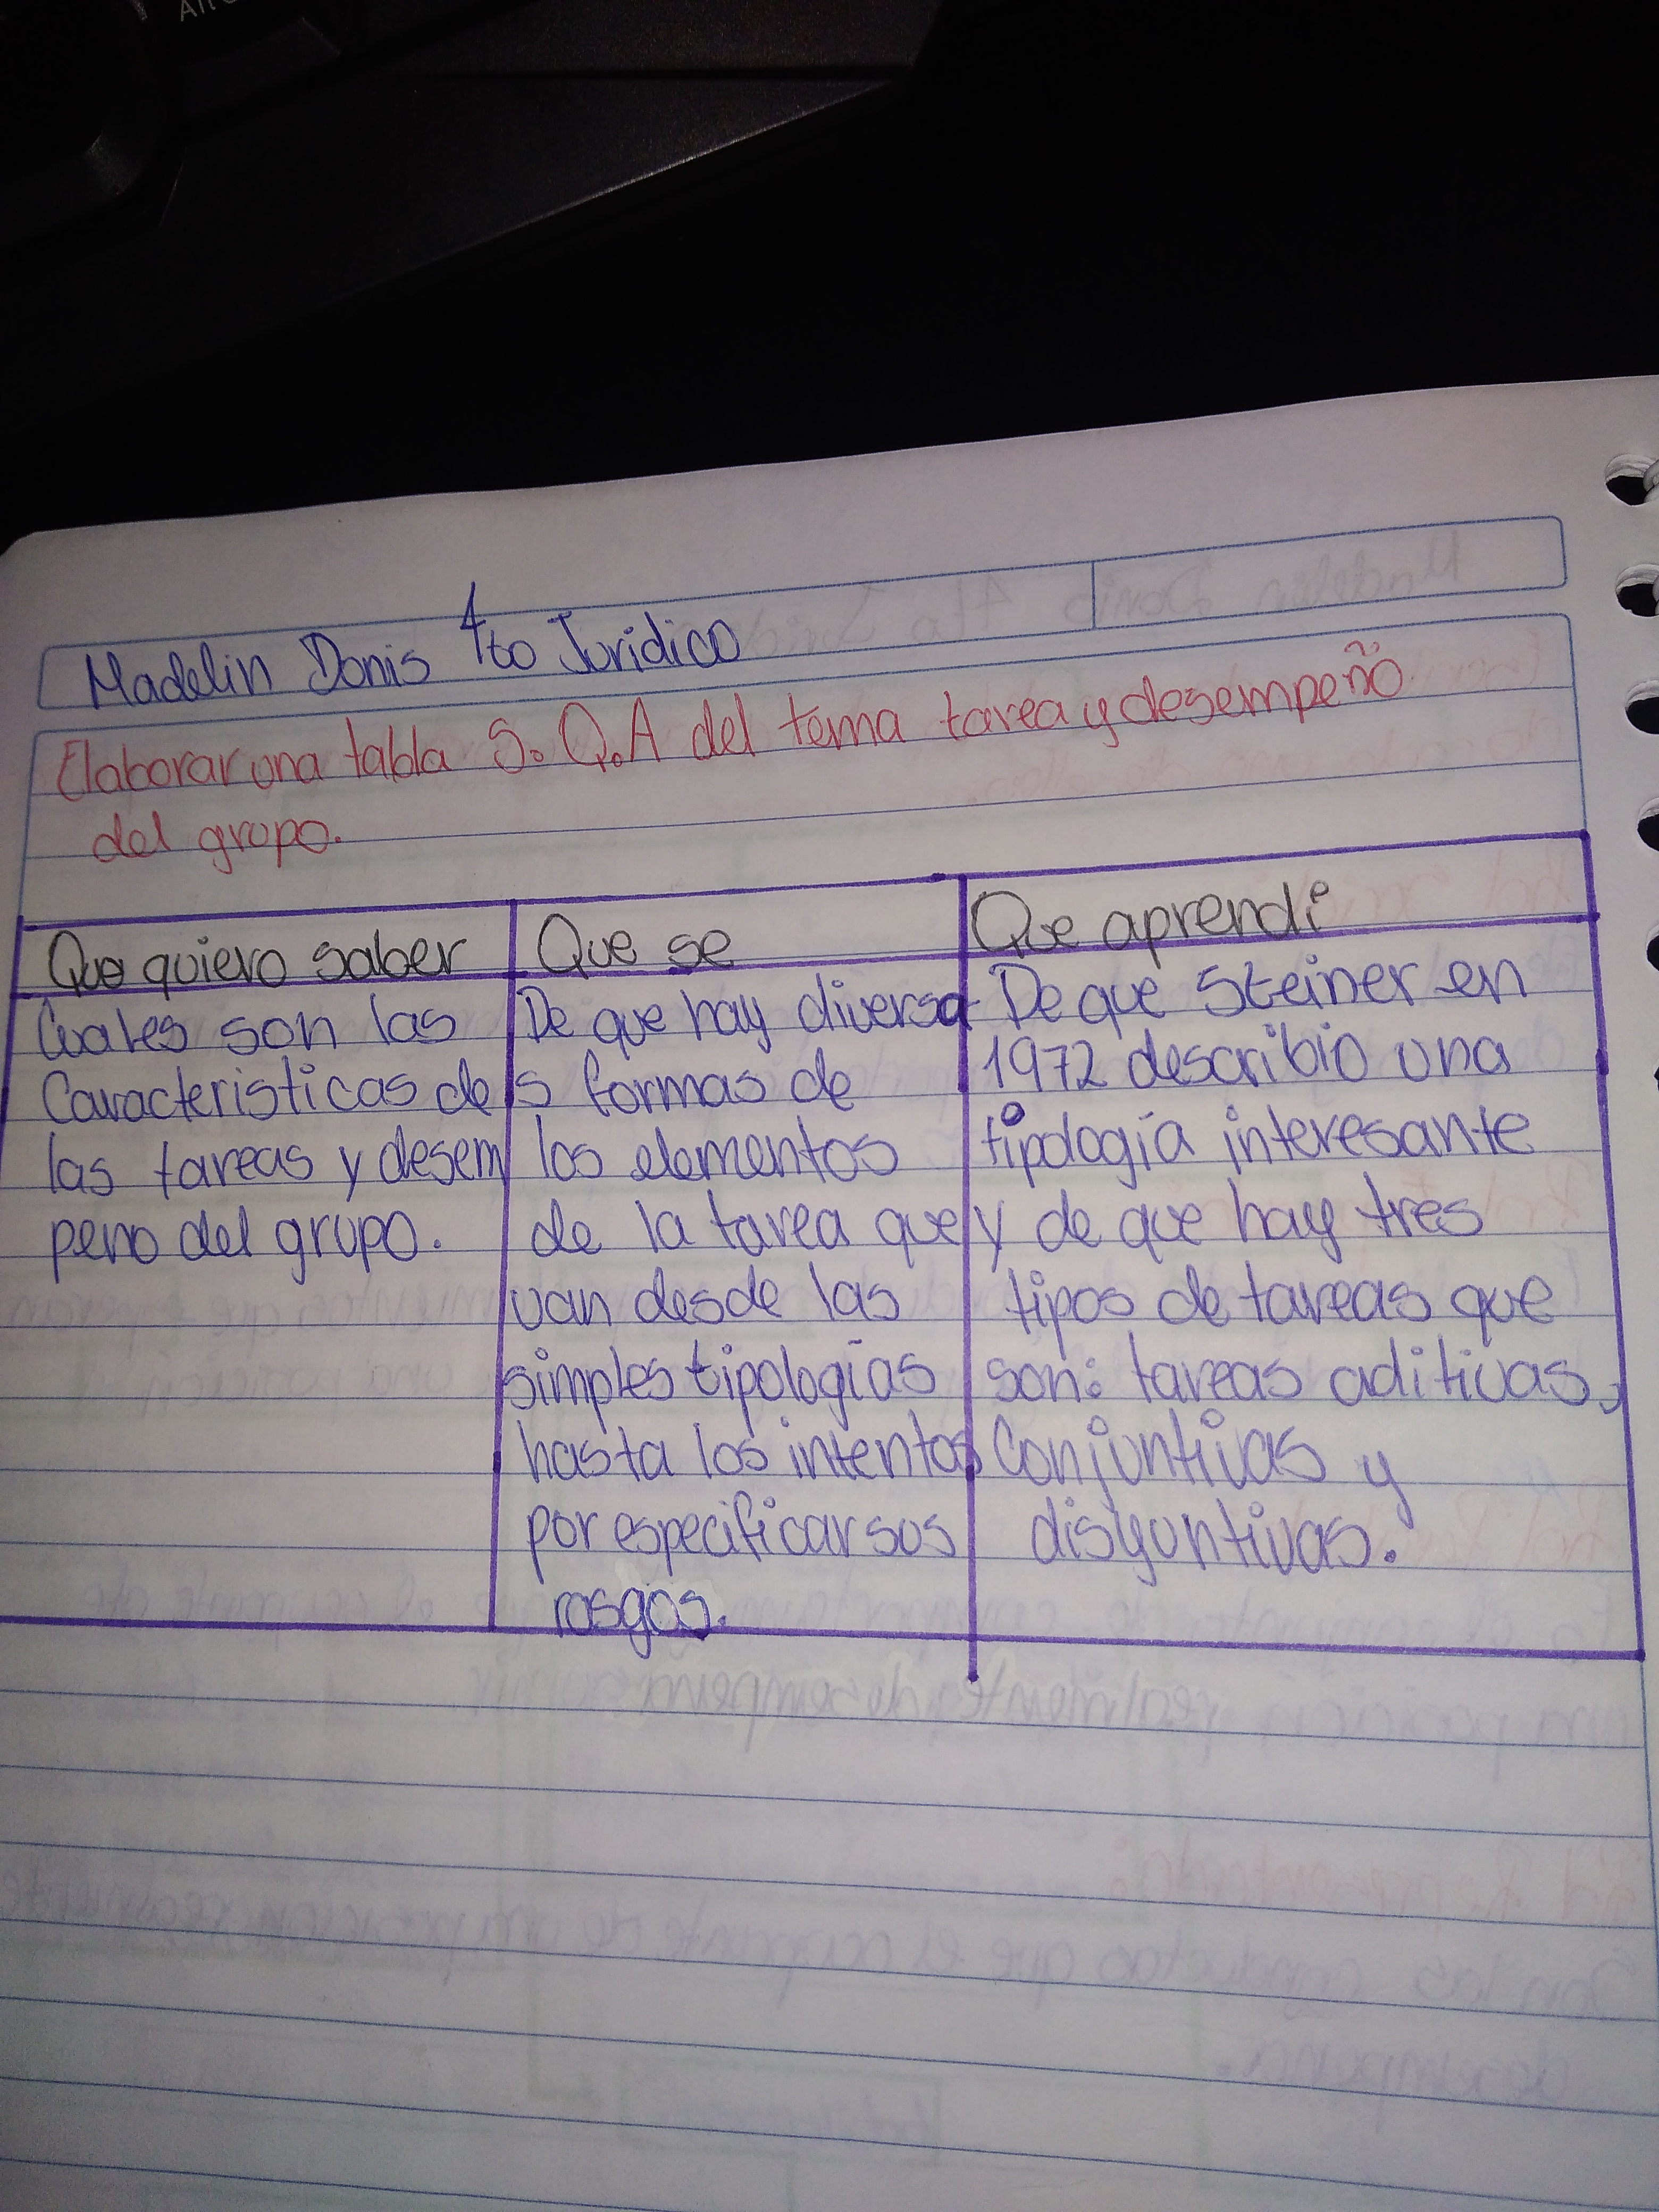 Alt
Madelin Donis 4to Jurídico
Elaborar una tabla S.Q.A del tema tarea y desempeño
del grupo.
Que quiero saber
Cuales son las
Caracteristicas de
las tareas y desem
peno del grupo.
Que se
De que hay diversa
s formas de
los elementos
de la tarea que
van desde las
simples tipologías
hasta los intentos
por especificar sus
rasgos.
Que aprendi
De que Steiner en
1972 describio una
tipología interesante
y de que hay tres
tipos de tareas que
son: tareas aditivas,
Conjuntivas y
disyuntivas.